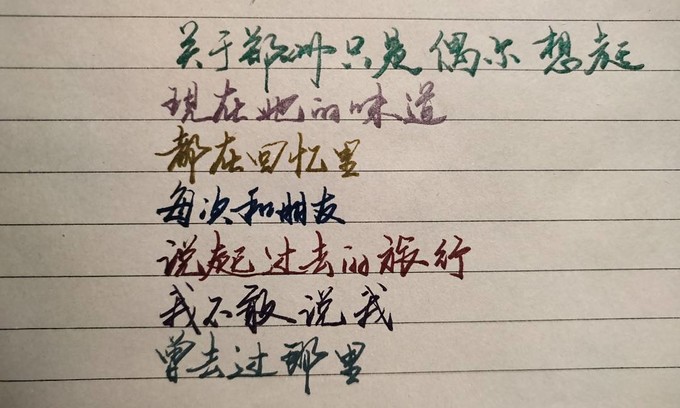 关于郑州只是偶尔想起
现在她的味道
都在回忆里
每次和朋友
说起过去的旅行
我不敢说我
曾去过那里